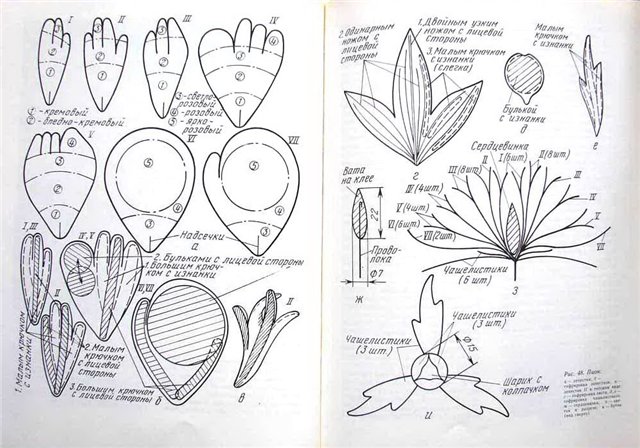 I
II
III
IV
③
④
②
②
②
②
①
①
①
①
①-кремовый
②-бледно-кремовый
③-светло-
розовый
④-розовый
⑤-ярко-
розовый
V
VI
VII
④
③
②
①
⑤
④
③
⑤
④
③
Надсечки
а
I, III
IV, V
II
VI, VII
II
2. Бульками с лицевой стороны
1. Большим крюч-
ком с изнанки
1. Малым крючком
с изнанки
2. Малым
крючком
с лицевой
стороны
3. Большим крючком
с лицевой стороны
б
в
2. Одинарным
ножом с
лицевой
стороны
1. Двойным узким
ножом с лицевой
стороны
3. Малым крючком
с изнанки
(слегка)
г
Булькой
с изнанки
д
Малым
крючком
с изнанки
е
Вата
на клее
22
Прово-
лока
Ф7
ж
Сердцевинка
I (6 шт)
II (8 шт)
III (8 шт)
IV (4 шт)
V (4 шт)
VI (6 шт)
VII (2 шт)
II
III
IV
V
VI
VII
Чашелистики
(6 шт)
з
Чашелистики
(3 шт.)
Чашелистики
(3 шт)
Ф15
Шарик с
колпачком
и
Рис. 48. Пион.